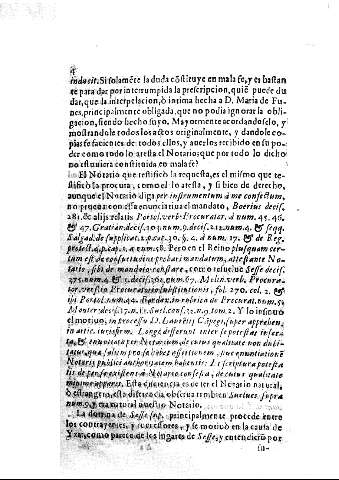 4
induxit. Si solamẽte la duda cõstituye en mala fe, y es bastan
te para dar por interrumpida la prescripcion, quiẽ puede du
dar, que la interpelacion, ò intima hecha a D. Maria de Fu-
nes, principalmente obligada, que no podia ignorar la obli-
gacion, siendo hecho suyo. Mayormente acordandoselo, y
mostrandole todos los actos originalmente, y dandole co-
pias fefacientes de todos ellos, y auerlos recibido en su po-
der como todo lo atesta el Notario; que por todo lo dicho
no estuuiera constituida en mala fe?
El Notario que testificò la requesta, es el mismo que te-
stificò la procura, como el lo atesta, y si bien de derecho,
aunque el Notario diga per instrumentum à me confectum,
no prueba con essa enunciatiua el mandato, Boerius decis.
281. & alijs relatis Portol. verb. Procurator. à num. 45. 46.
& 47. Gratian. decis. 103. num. 9. decis. 212. num. 4. & seqq.
Salgad. de supplicat. 2. p. cap. 30. §. 4. à num. 17. & de Reg.
protect. 4. p. cap. 1. à num. 58. Pero en el Reino plusquam cer-
tum est de consuetudine probari mandatum, attestante No-
tario, sibi de mandato constare, como resuelue Sesse decis.
375. num. 4. & 5. decis. 360. num. 67. Molin. verb. Procura-
tor, vers. Procuratorio substitutiones, fol. 270. col. 2. &
ibi Portol. num. 44. Bardax. in rubrica de Procurat. num. 54
Monter decis. 17. n. 11. Suel. cons. 22. n. 9. tom. 2. Y lo insinuò
el motiuo, in processu D. Laurẽtij Climent super apprehen.
in artic. iurisfirm. Longè differunt inter se potestas infer-
ta, & enuntiata per Notarium de cuius qualitate non dubi-
tatur, quia saltim pro solo hoc assertionem, siue enuntiationẽ
Notarij publici authorizatam habentis: Et scriptura potesta
tis de per se existens à Notario confecta, de cuius qualitate
minimè apparet. Esta diferencia es de ser el Notario natural,
ò estrangero, esta diferencia obserua tambien Suelues supra
num. 9. y era natural nuestro Notario.
La dotrina de Sesse sup. principalmente procede entre
los contrayentes, y sucessores, y se motiuò en la causa de
Yxar, como parece de los lugares de Sesse, y entendiciò por
su-